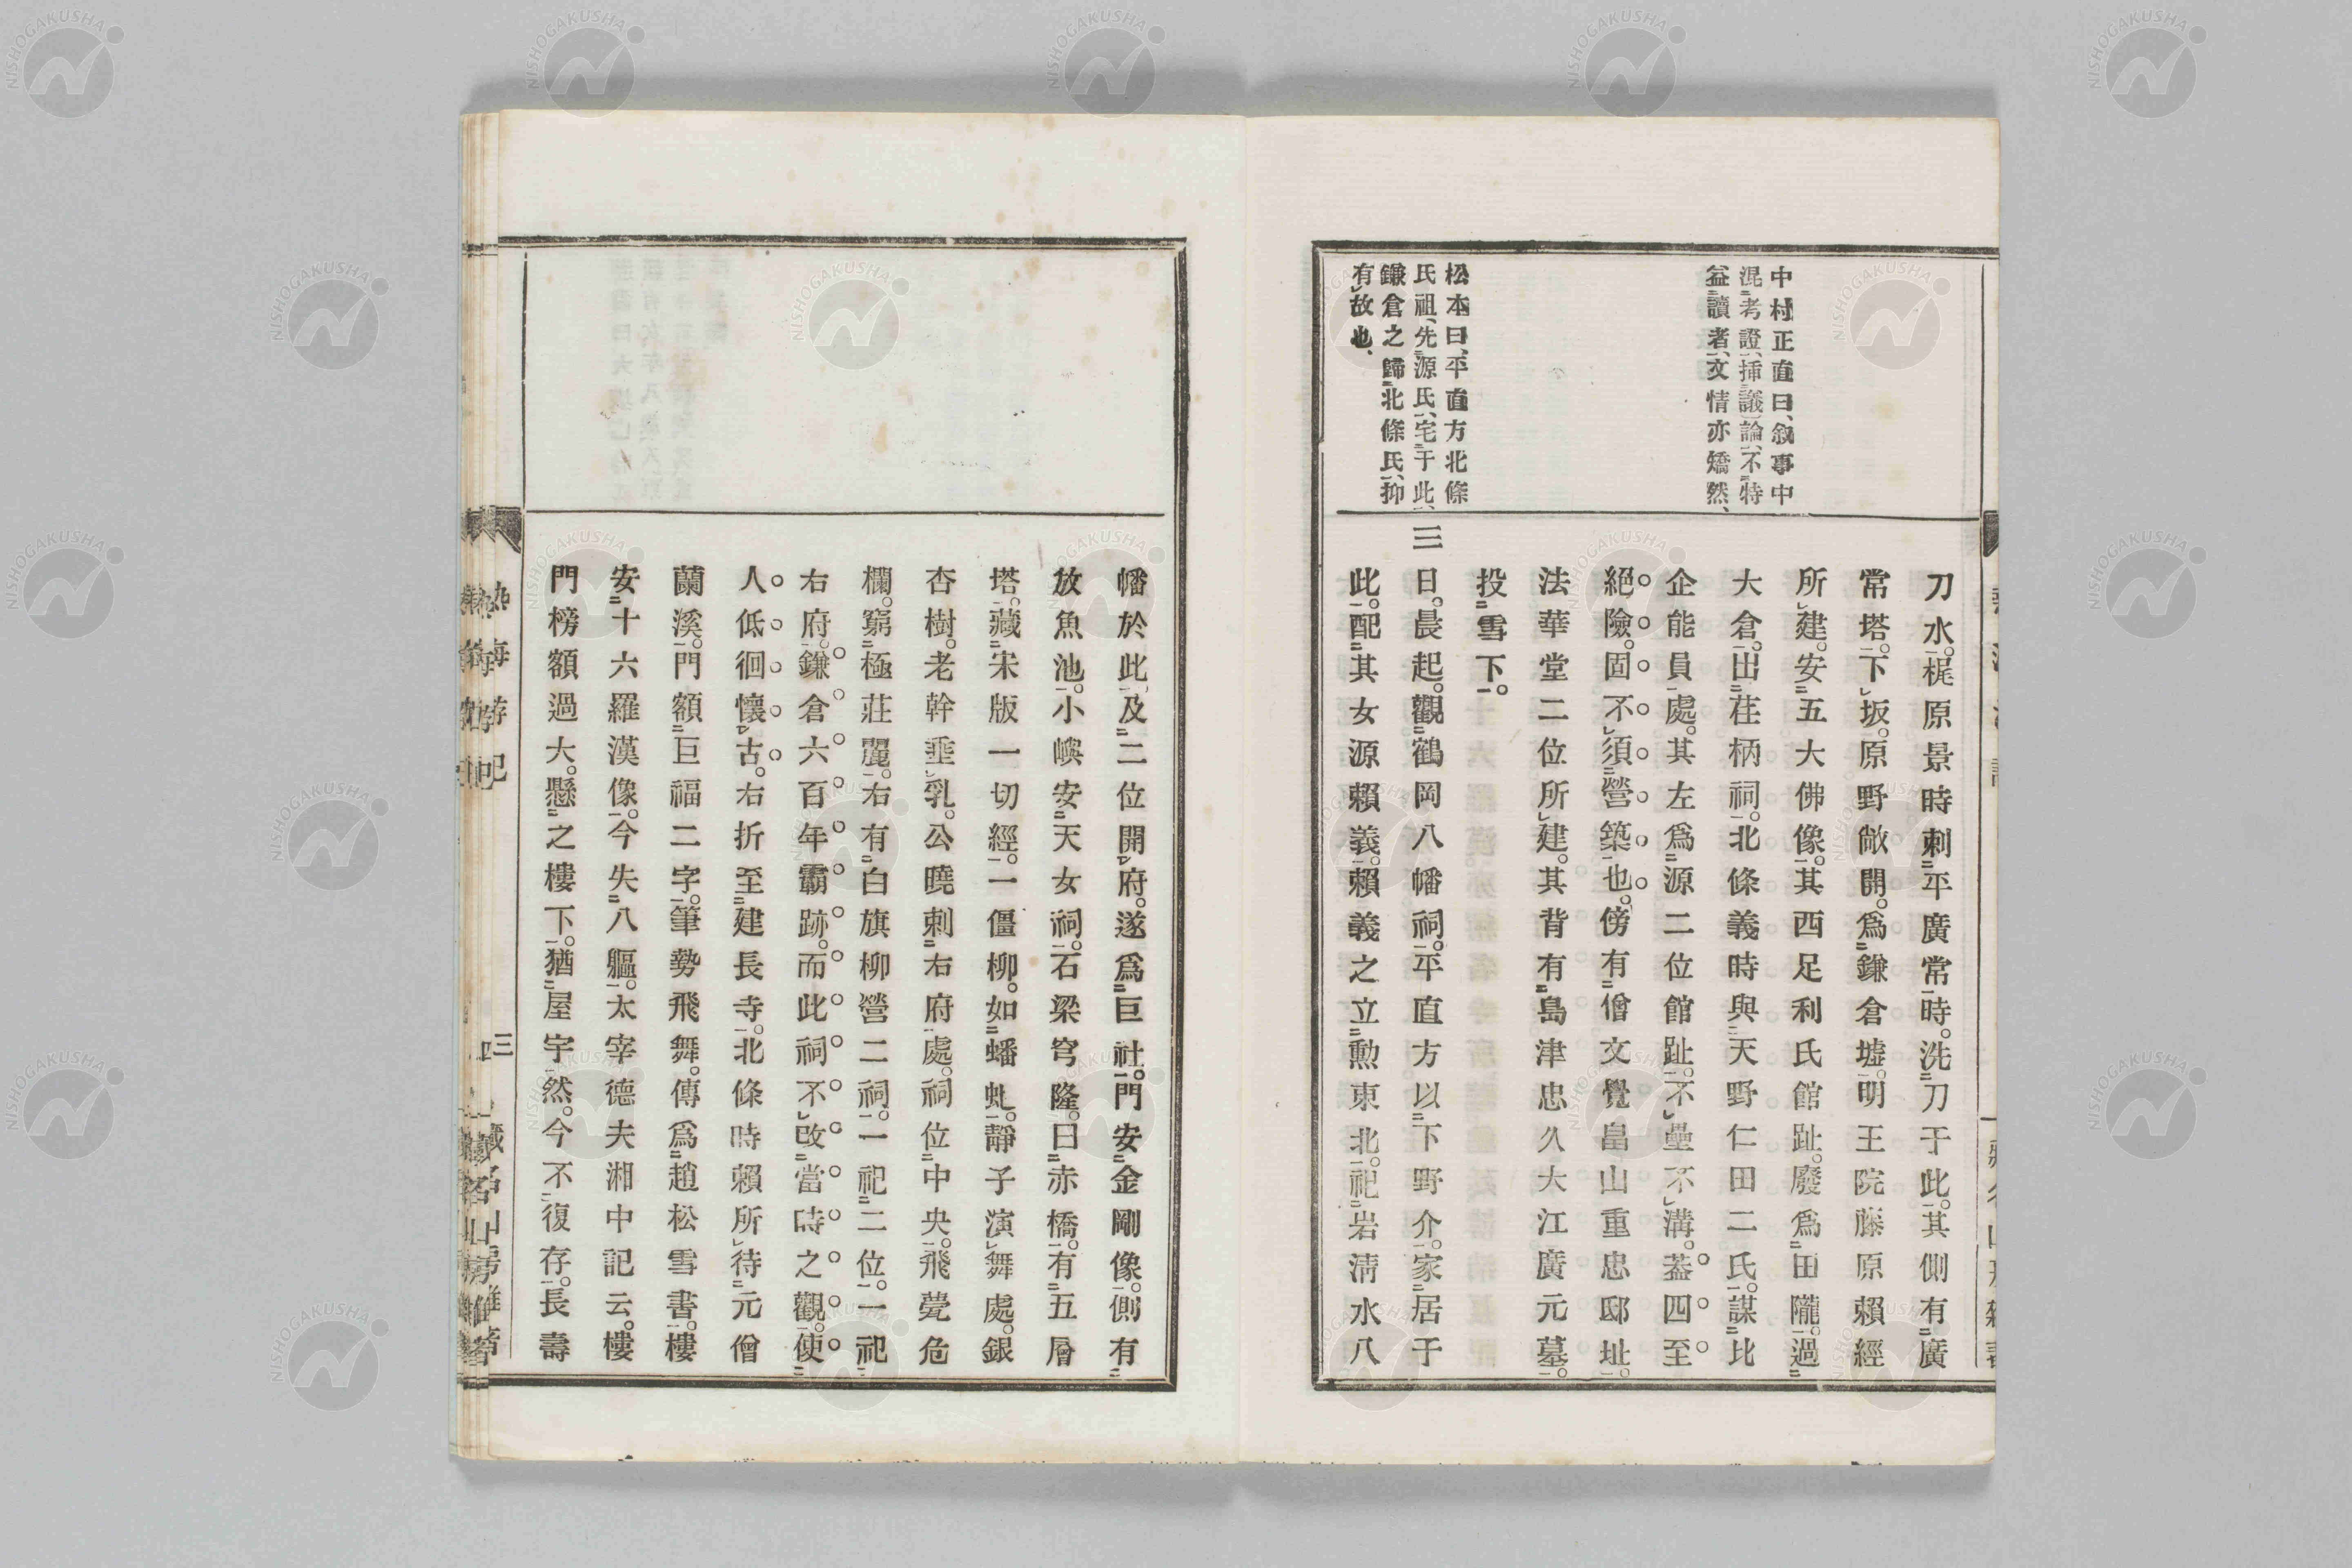 中村正直曰、敘事中
混考證、挿議論、不特
益讀者、文情亦矯然、
松本曰、平直方北條
氏祖、先源氏、宅于此、
鎌倉之歸北條氏、抑
有故也、
刀水。梶原景時刺平廣常時。洗刀于此。其側有廣
常塔。下坂。原野敞開。爲鎌倉墟。明王院藤原賴經
所建。安五大佛像。其西足利氏館趾。廢爲田隴。過
大倉。出荏柄祠。北條義時與天野仁田二氏。謀比
企能員處。其左爲源二位館趾。不壘不溝。葢四至
絕險。固不須營築也。傍有僧文覺畠山重忠邸址。
法華堂二位所建。其背有島津忠久大江廣元墓。
投雪下。
三日。晨起。觀鶴岡八幡祠。平直方以下野介。家居于
此。配其女源賴義。賴義之立勳東北。祀岩淸水八
幡於此及二位開府。遂爲巨社。門安金剛像。側有
放魚池。小嶼安天女祠。石梁穹隆。曰赤橋。有五層
塔。藏宋版一切經。一僵柳。如蟠虬。靜子演舞處。銀
杏樹。老幹垂乳。公曉刺右府處。祠位中央。飛甍危
欄。窮極莊麗。右有白旗柳營二祠。一祀二位。一祀
右府。鎌倉六百年霸跡。而此祠不改當時之觀。使
人低徊懷古。右折至建長寺。北條時賴所待元僧
蘭溪。門額巨福二字。筆勢飛舞。傳爲趙松雪書。樓
安十六羅漢像。今失八軀。太宰德夫湘中記云。樓
門榜額過大。懸之樓下。猶屋宇然。今不復存。長壽
熱海游記
三